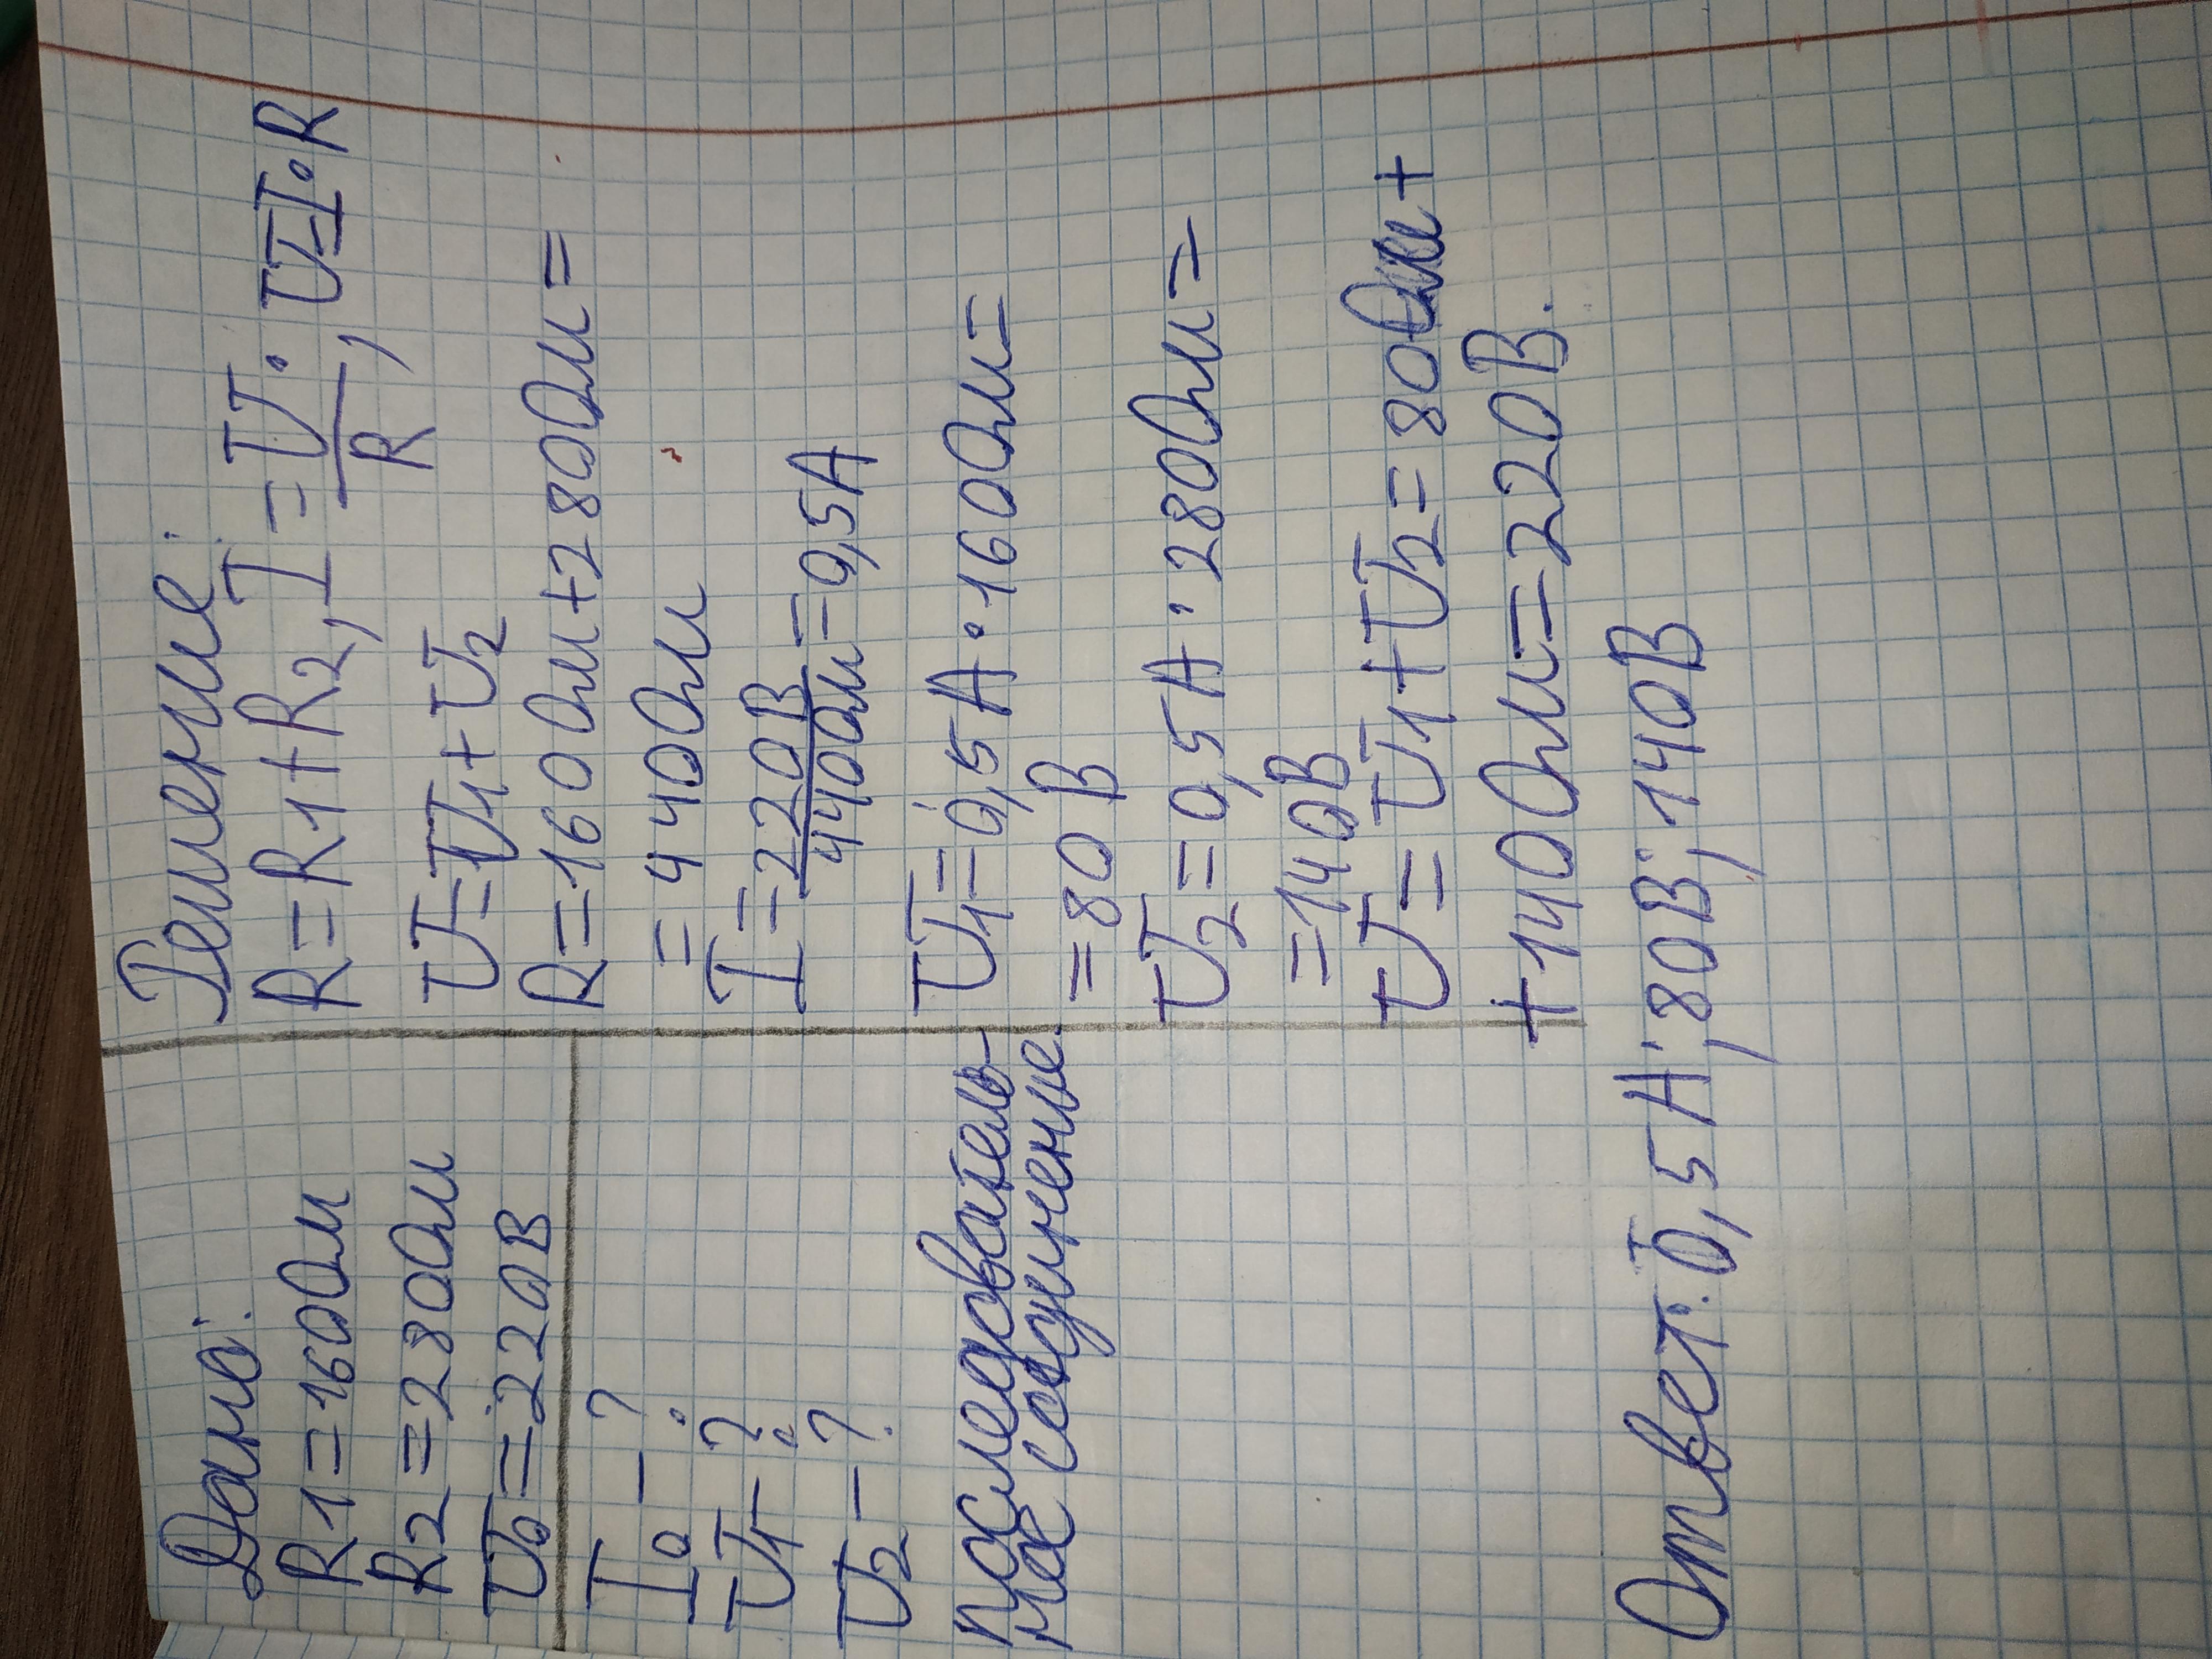 Дано:
R1=160Ом
R2=280Ом
U0=220В
I0-?
U1-?
U2-?
последователь-
ное соединение.
Решение:
R=R1+R2, I=U/R, U=I·R
U=U1+U2
R=160Ом+280Ом=
=440Ом
I=220В/440Ом=0,5А
U1=0,5А·160Ом=
=80В
U2=0,5А·280Ом=
=140В
U=U1+U2=80Ом+
+140Ом=220В.
Ответ: 0,5А; 80В; 140В